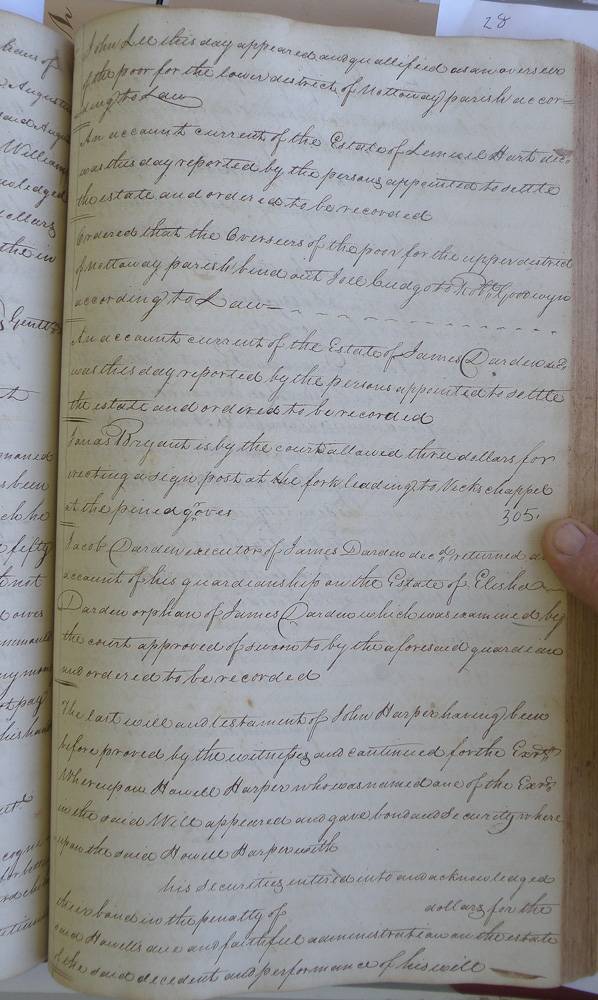 28
John Lee this day appeared and quallified as an overseer
of the poor for the lower district of Nottoway parish accor=
ding to Law
An account current of the Estate of Lemuel Hart decd
was this day reported by the persons appointed to settle
the estate and ordered to be recorded
Ordered that the Overseers of the poor for the upper district
of Nottoway parish bind out Joel Cudgo to Robt Goodwyn
according to Law
An account current of the Estate of James Darden decd
was this day reported by the persons appointed to settle
the estate and ordered to be recorded
Jonas Bryant is by the court allowed three dollars for
erecting a sign post at the fork leading to Vicks chappel
at the piney groves 305.
Jacob Darden executor of James Darden decd returned an
account of his guardianship on the Estate of Elisha
Darden orphan of James Darden which was examined by
the court approved of sworn to by the aforesaid guardian
and ordered to be recorded
The last will and testament of John Harper having been
before proved by the witnesses and continued for the Exrs
Whereupon Howell Harper who was named one of the Exrs
in the said Will appeared and gave bond and security where
upon the said Howell Harper with
his securities entered into and acknowledged
their bond in the penalty of dollars for the
said Howells due and faithful administration on the estate
of the said decedent and performance of his will